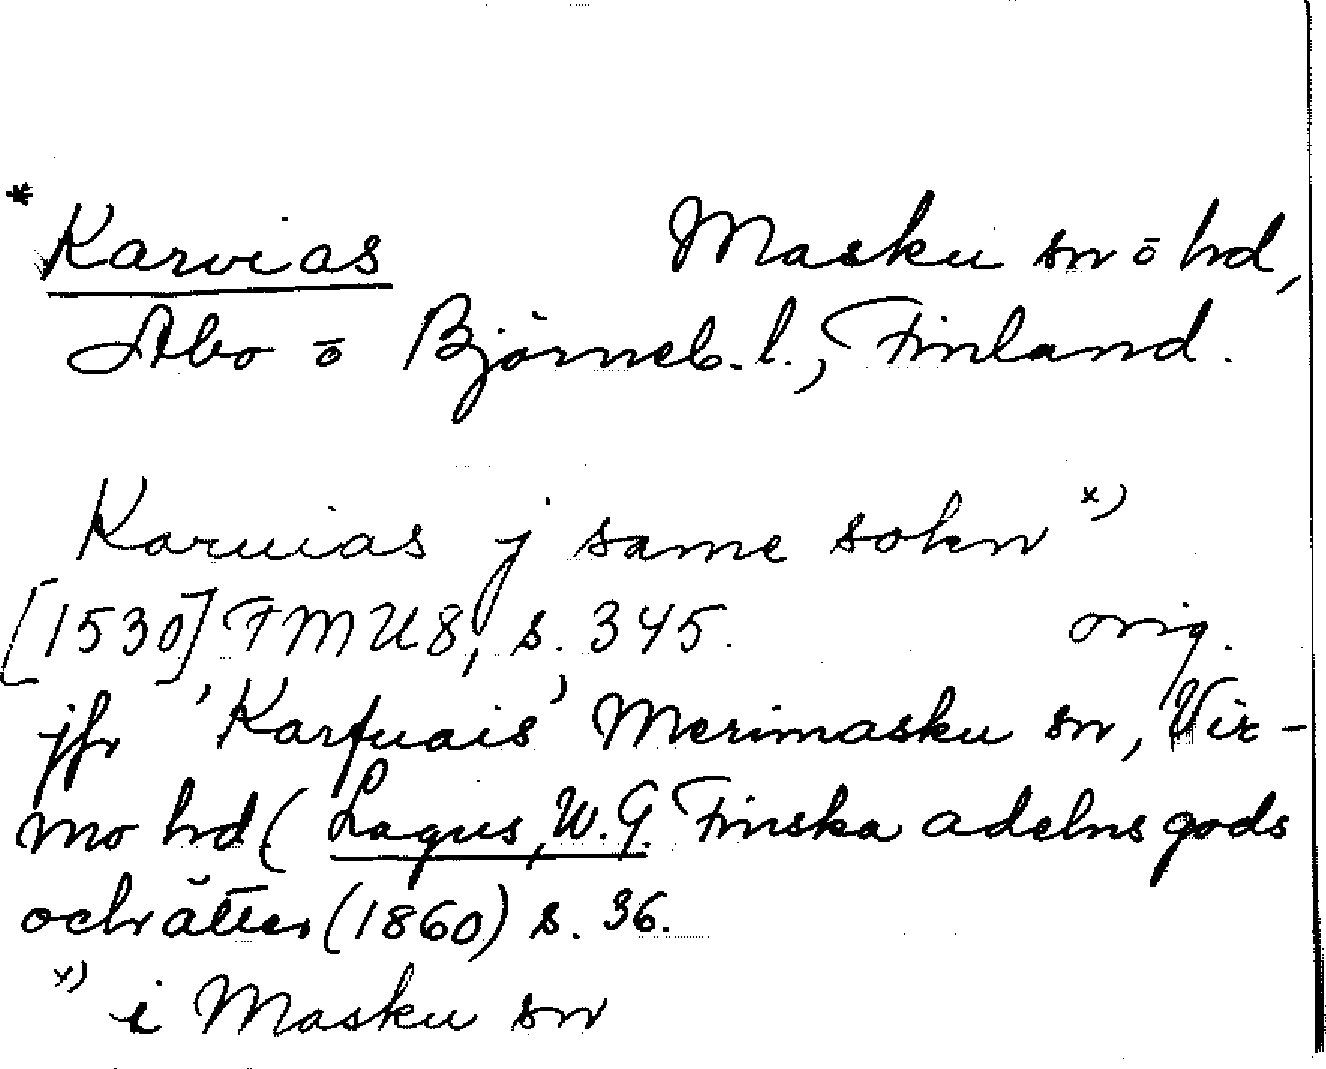 * Karvias Masku sn ō hd,
Åbo ō Björneb. l., Finland.
Karuias j same sokn x)
[1530] FMU8, s. 345. orig.
jfr 'Karfuais' Merimasku sn, Vir-
mo hd (Lagus, W.G. Finska adelns gods
och ätter (1860) s. 36.
x) i Masku sn